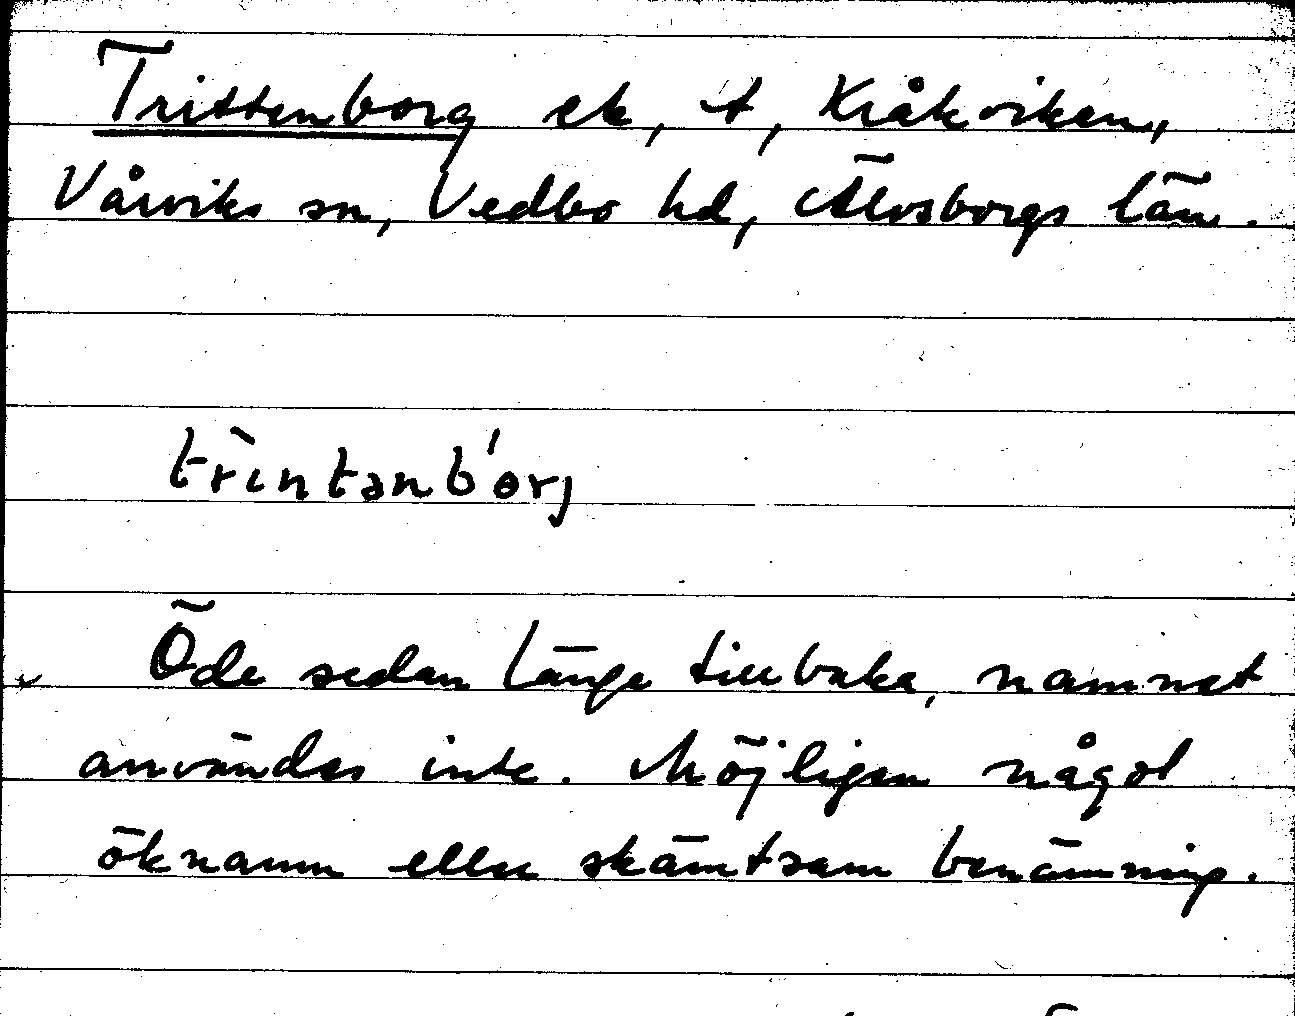 Trittenborg ek, t, Kråkviken,
Vårviks sn, Vedbo hd, Älvsborgs län.
trìntənb'orj
Öde sedan länge tillbaka, namnet
användes inte. Möjligen något
öknamn eller skämtsam benämning.